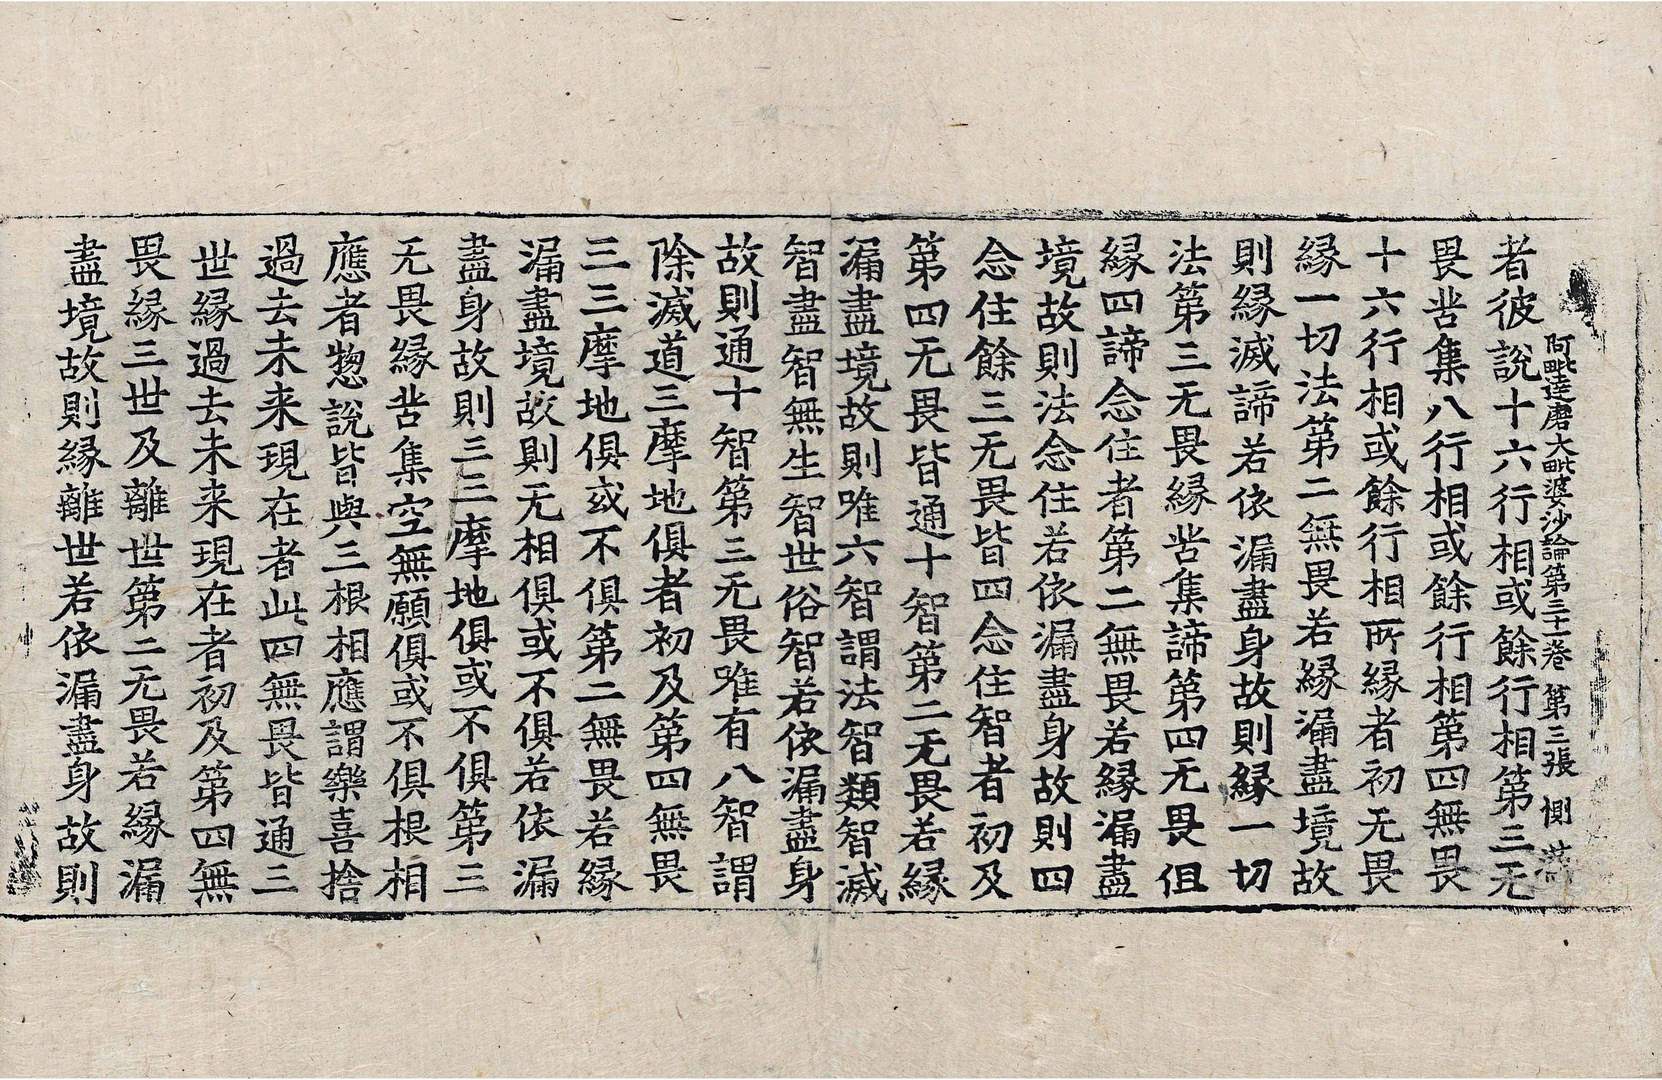 阿毗達磨大毗婆沙論第三十一卷 第三張 惻
者彼說十六行相或餘行相第三无
畏苦集八行相或餘行相第四無畏
十六行相或餘行相所縁者初无畏
縁一切法第二無畏若縁漏盡境故
則縁滅諦若依漏盡身故則縁一切
法第三无畏縁苦集諦第四无畏但
縁四諦念住者第二無畏若縁漏盡
境故則法念住若依漏盡身故則四
念住餘三无畏皆四念住智者初及
第四无畏皆通十智第二无畏若縁
漏盡境故則唯六智謂法智類智滅
智盡智無生智世俗智若依漏盡身
故則通十智第三无畏唯有八智謂
除滅道三摩地俱者初及第四無畏
三三摩地俱或不俱第二無畏若縁
漏盡境故則无相俱或不俱若依漏
盡身故則三三摩地俱或不俱第三
无畏縁苦集空無願俱或不俱根相
應者惣說皆與三根相應謂樂喜捨
過去未来現在者此四無畏皆通三
世縁過去未来現在者初及第四無
畏縁三世及離世第二无畏若縁漏
盡境故則縁離世若依漏盡身故則